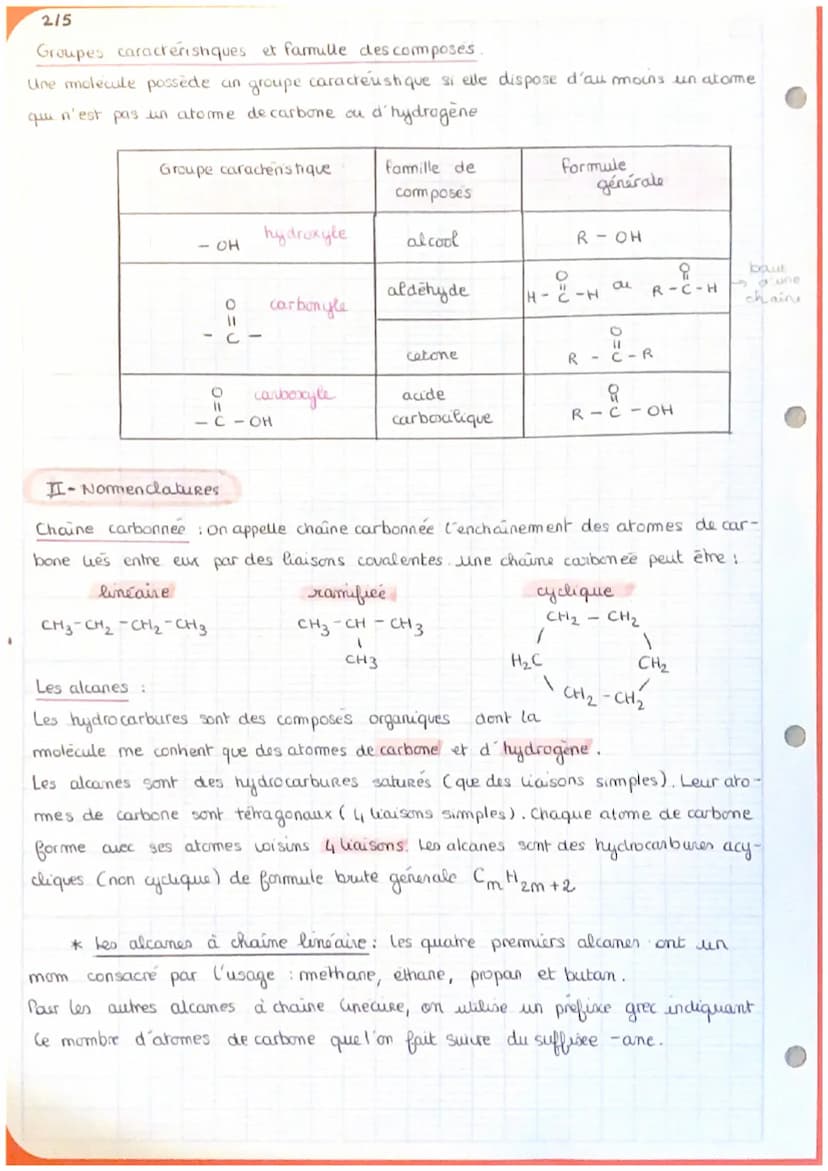 2/5
Groupes caractéristiques et famille des composés.
Une molécule possède un groupe caractéristique si elle dispose d'au moins un atome
qui n'est pas un atome de carbone ou d'hydrogène
Groupe caractéristique
famille de
composés
formule
générale
- OH hydroxyle
alcool
R - OH
O
||
- C -
carbonyle
aldéhyde
O
||
H - C - H
ou
O
||
R - C - H
→ bout
d'une
chaîne
cetone
O
||
R - C - R
O
||
- C - OH
carboxyle
acide
carboxilique
O
||
R - C - OH
II - Nomenclatures
Chaîne carbonnée : On appelle chaîne carbonnée l'enchaînement des atomes de car-
bone liés entre eux par des liaisons covalentes. une chaîne carbonee peut être :
linéaire
ramifiée
cyclique
CH3-CH2-CH2-CH3
CH3-CH-CH3
CH3
CH2 - CH2
H2C
CH2
CH2-CH2
Les alcanes :
Les hydrocarbures sont des composés organiques dont la
molécule ne contient que des atomes de carbone et d'hydrogène.
Les alcanes sont des hydrocarbures saturés (que des liaisons simples). Leur ato-
mes de carbone sont tétragonaux (4 liaisons simples). Chaque atome de carbone
forme avec ses atomes voisins 4 liaisons. Les alcanes sont des hydrocarbures acy-
cliques (non cyclique) de formule brute générale CnH2n+2
* Les alcanes à chaîne linéaire : les quatre premiers alcanes ont un
nom consacré par l'usage : méthane, éthane, propan et butan.
Pour les autres alcanes à chaîne linéaire, on utilise un préfixe grec indiquant
le nombre d'atomes de carbone que l'on fait suivre du suffixee -ane.